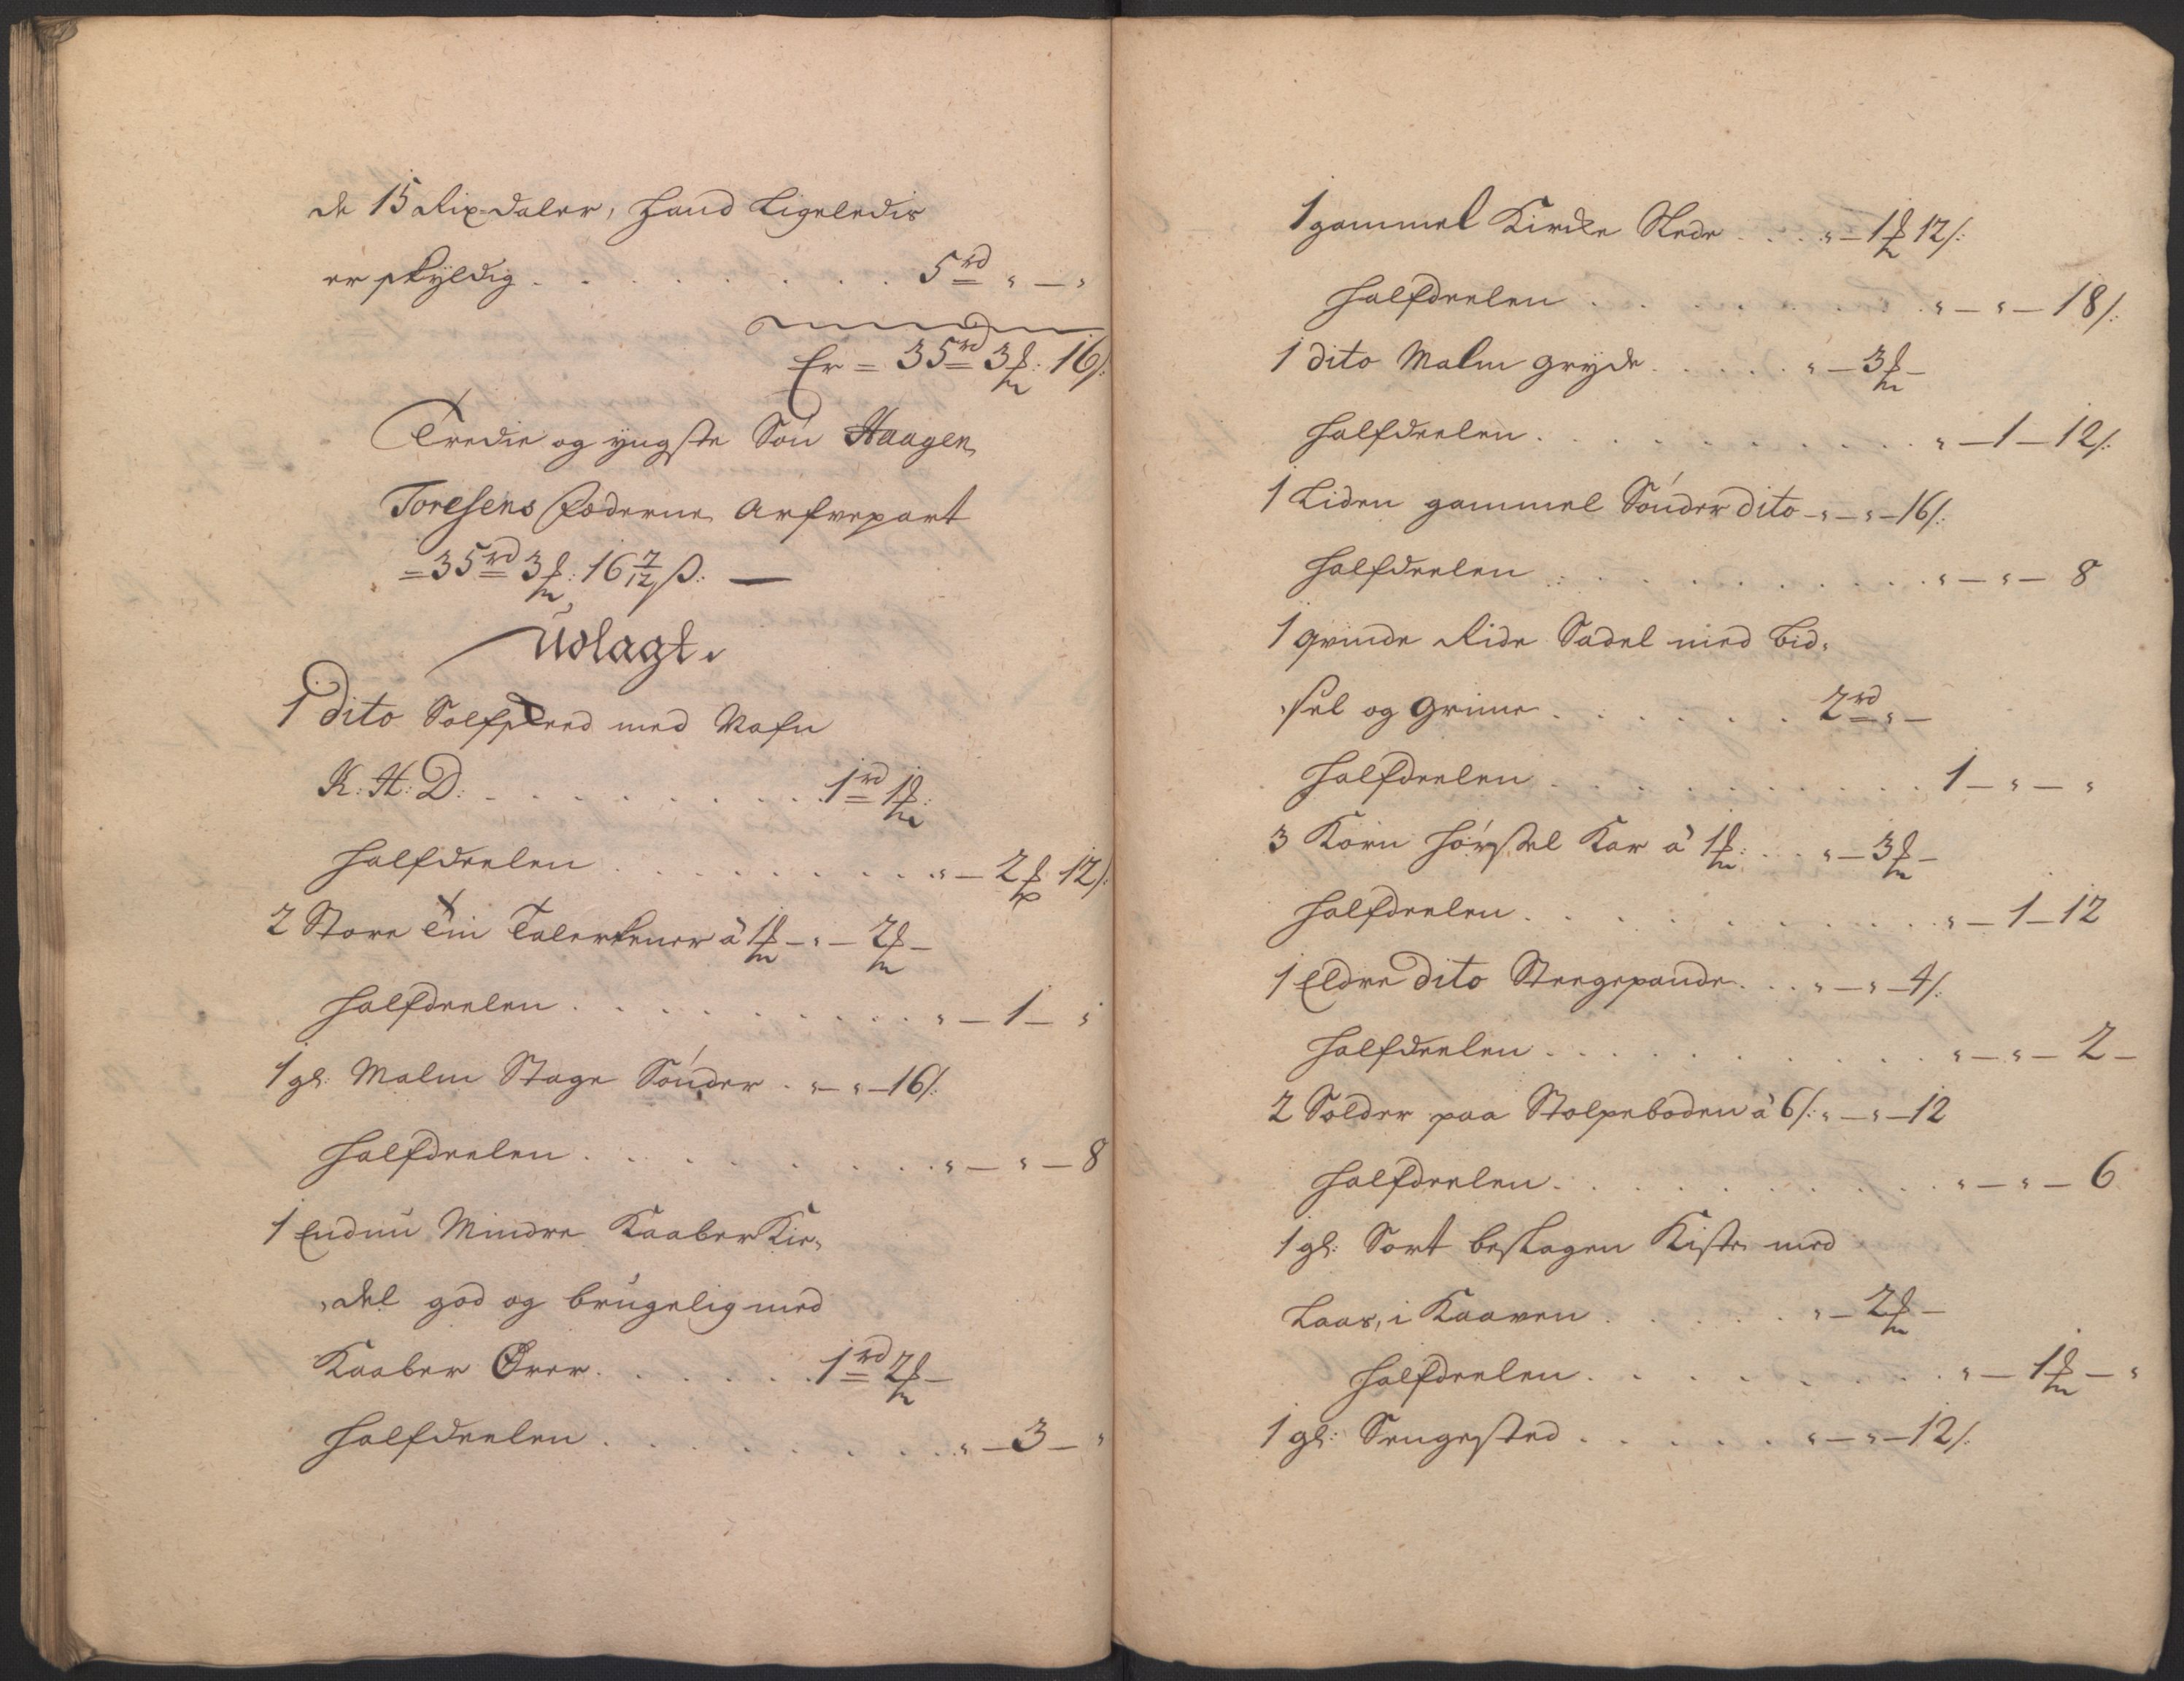 de 15 Rix-daler, hand Ligeledis
er skyldig . . . . . . . . 5 rd „ — „
Er = 35 rd 3 ℳ: 16 ß:
Tredie og yngste Søn Haagen
Toresens Fæderne Arfvepart
= 35 rd 3 ℳ: 16 7/12 ß: —
Udlagt.
1 dito Sølfskeed med Nafn
K: H: D: . . . . . . . . 1 rd 1 ℳ:
Halfdeelen . . . . . . . . „ — 2 ℳ 12 ß:
2 Store Tin Talerkener à 1 ℳ — „ — 2 ℳ —
Halfdeelen . . . . . . . . „ — 1 — „
1 gl: Malm Stage Sønder . „ — „ — 16 ß:
Halfdeelen . . . . . . . . „ — „ — 8
1 Endnu Mindre Kaaber Kie-
-del god og brugelig med
Kaaber Ører . . . . . . 1 rd 2 ℳ —
Halfdeelen . . . . . . . . „ — 3 — „
1 gammel Kircke Slede . . . „ — 1 ℳ 12 ß:
Halfdeelen . . . . . . . . „ — „ — 18 ß:
1 dito Malm gryde . . . . . „ — 3 ℳ —
Halfdeelen . . . . . . . . „ — 1 — 12 ß:
1 Liden gammel Sønder dito — „ — „ — 16 ß:
Halfdeelen . . . . . . . . „ — „ — 8
1 qvinde Ride Sadel med Bid-
-sel og Grime . . . . . . 2 rd „ —
Halfdeelen . . . . . . . . 1 — „ — „
3 Korn Hørstel Kar à 1 ℳ: . . . „ — 3 ℳ —
Halfdeelen . . . . . . . . „ — 1 — 12
1 Eldre dito Steegepande . . . „ — „ — 4 ß:
Halfdeelen . . . . . . . . „ — „ — 2 —
2 Solder paa Stolpeboden à 6 ß: „ — „ — 12
Halfdeelen . . . . . . . . „ — „ — 6
1 gl: Sort beslagen Kiste med
Laas, i Kaaven . . . . . „ — 2 ℳ —
Halfdeelen . . . . . . . . „ — 1 ℳ — „
1 gl: Sengested . . . . . . „ — „ — 12 ß: